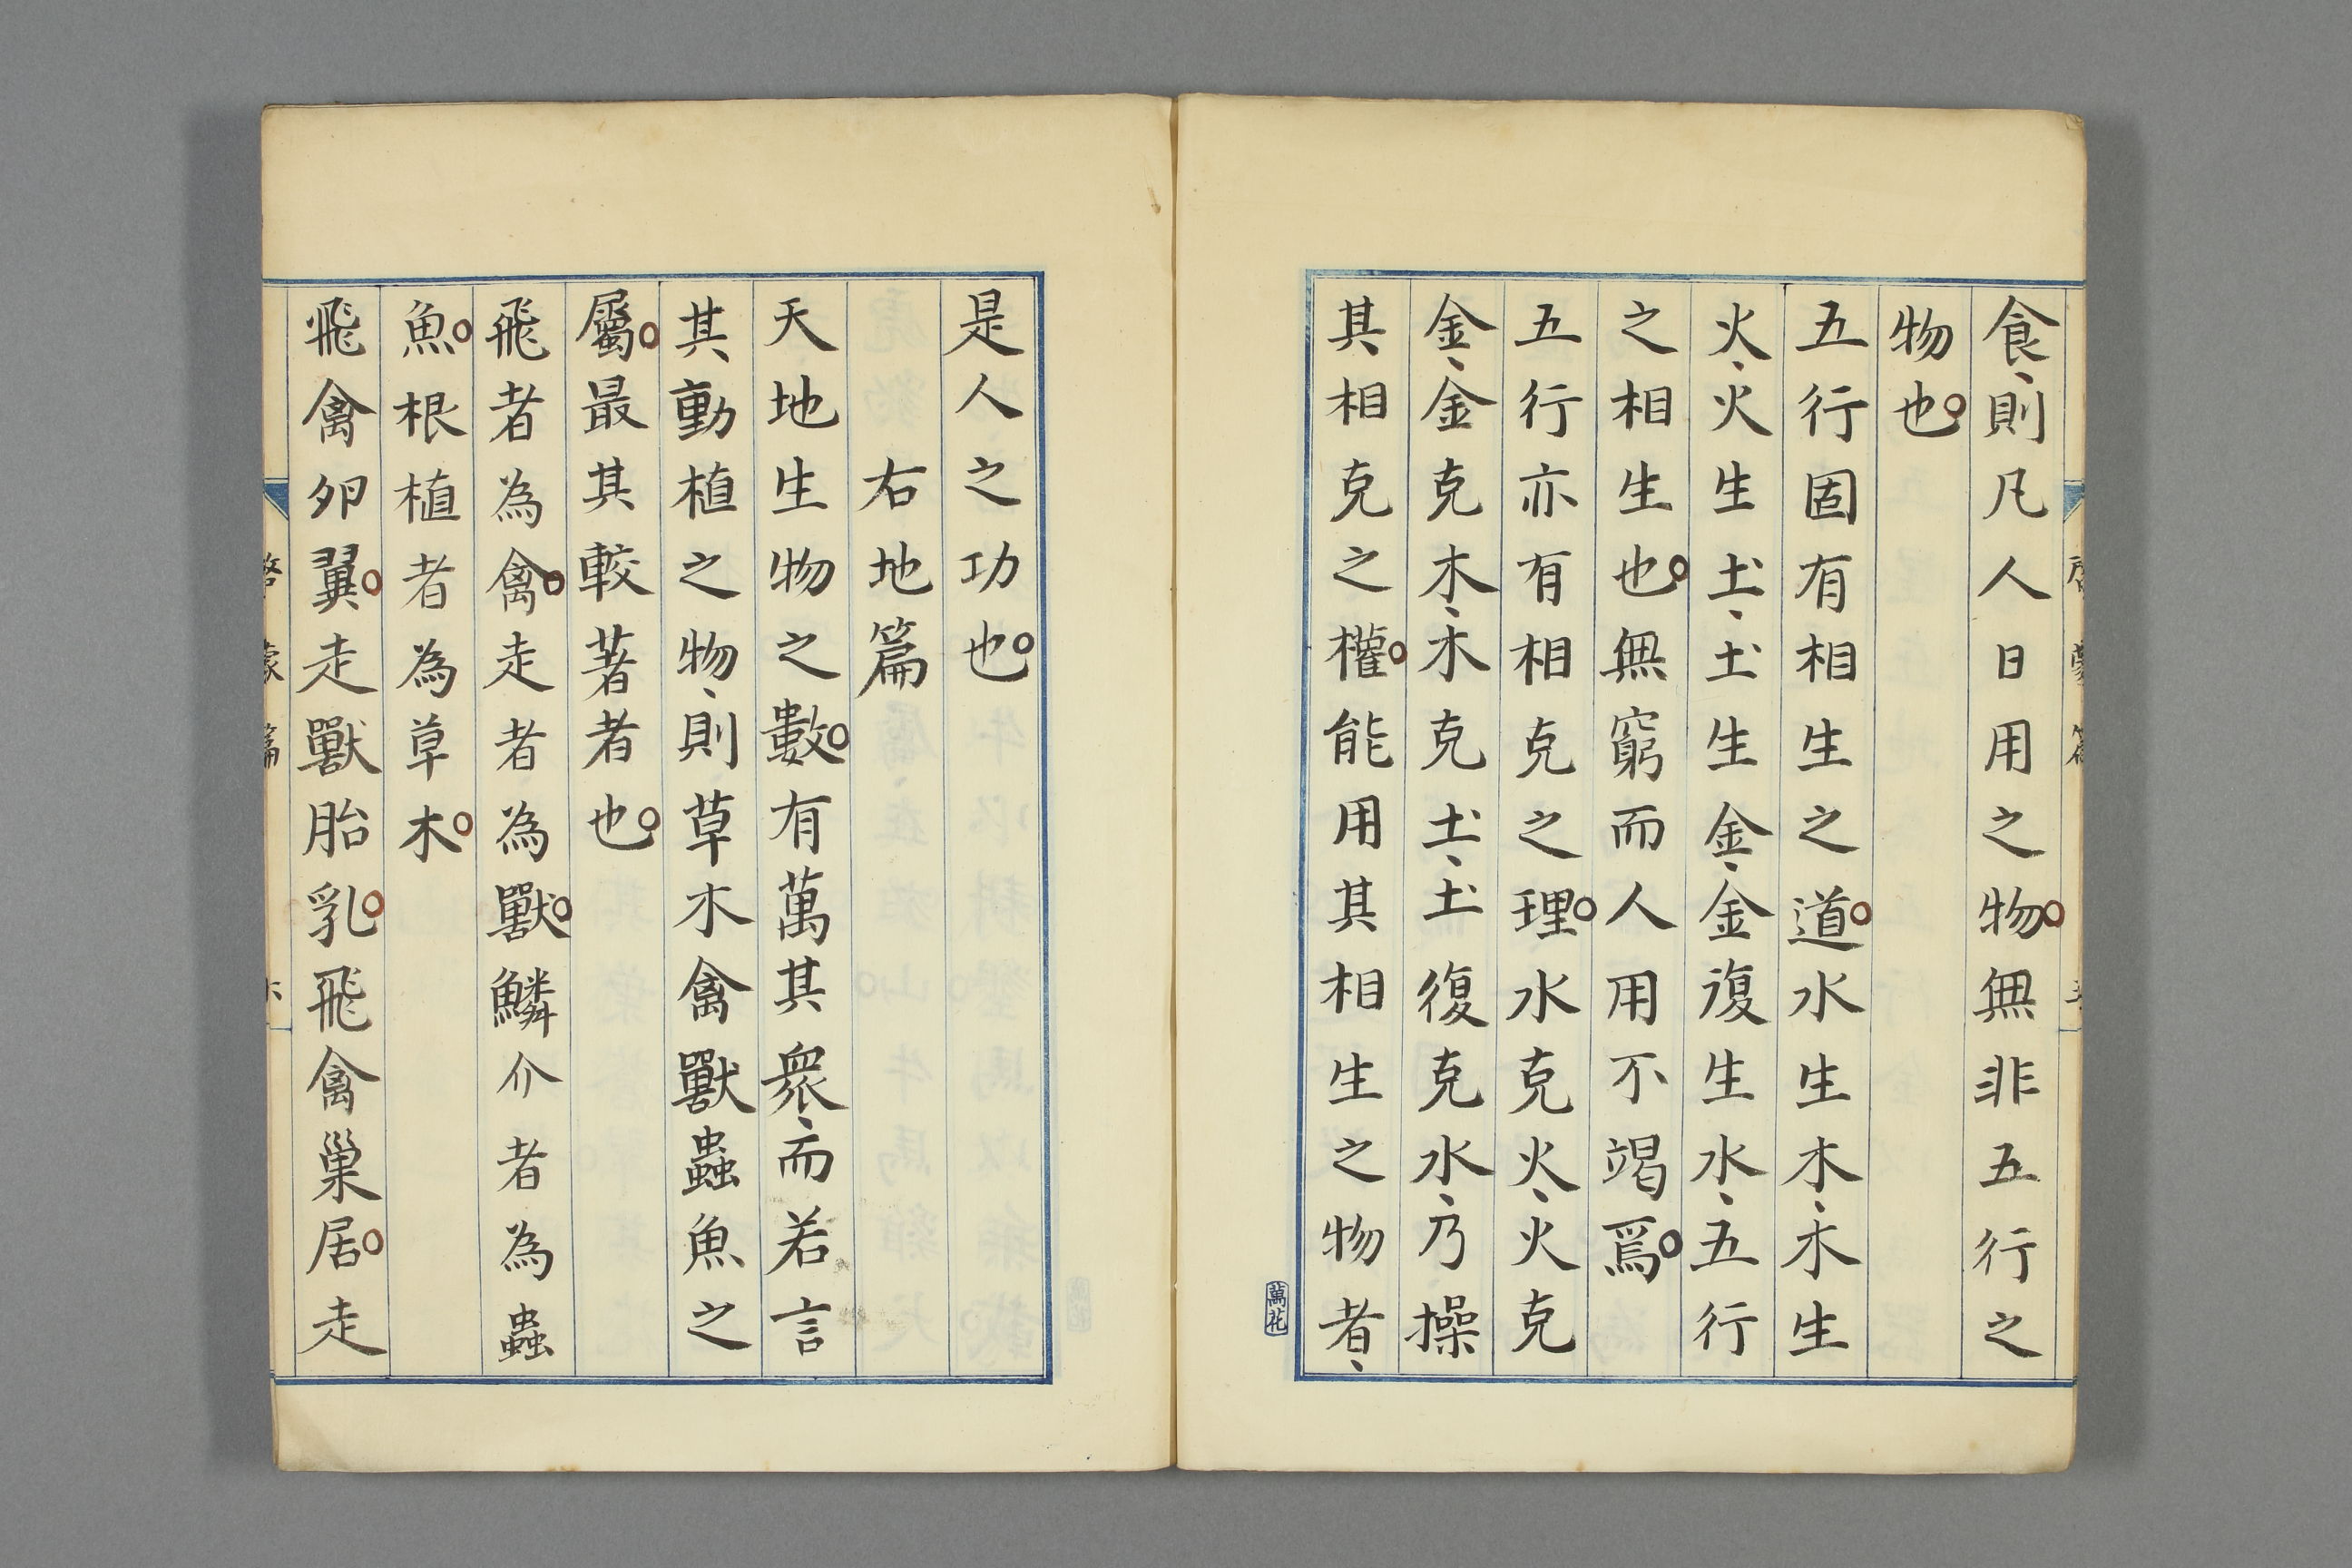 食、則凡人日用之物。無非五行之
物也。
五行固有相生之道。水生木、木生
火、火生土、土生金、金復生水、五行
之相生也。無窮而人用不竭焉。
五行亦有相克之理。水克火、火克
金、金克木、木克土、土復克水、乃操
其相克之權。能用其相生之物者、
萬花
是人之功也。
右地篇
天地生物之數。有萬其衆、而若言
其動植之物、則草木禽獸蟲魚之
屬。最其較著者也。
飛者為禽。走者為獸。鱗介者為蟲
魚。根植者為草木。
飛禽卵翼。走獸胎乳。飛禽巢居。走